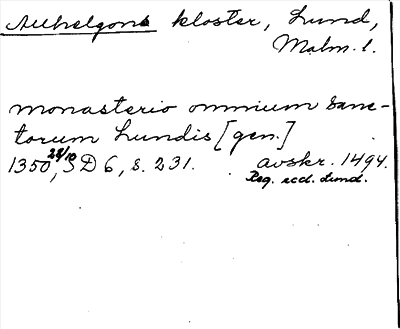 Allhelgona kloster, Lund,
Malm. l.
monasterio omnium sanc-
torum Lundis [gen.]
1350 28/10, SD 6, s. 231. avskr. 1494.
Reg. eccl. Lund.